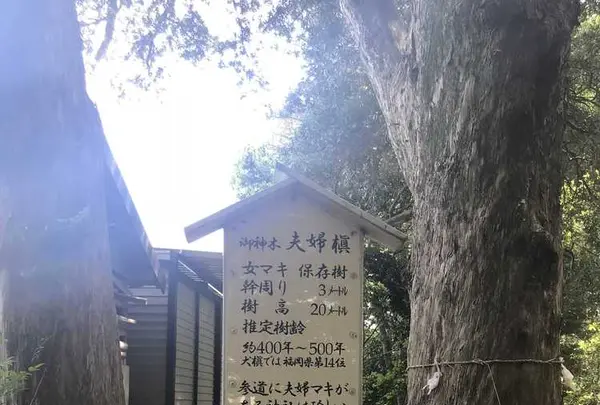 御神木 夫婦槇
女マキ 保存樹
幹周り 3メートル
樹高 20メートル
推定樹齢
約400年~500年
大槇では福岡県第14位
参道に夫婦マキが
ある神社は珍しく